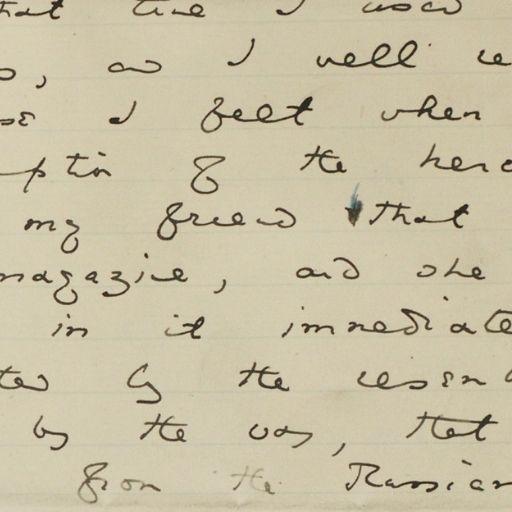 that time I used
s, and I well re
se I felt when
ption of the hero
my friend that
magazine, and she
in it immediate
ted by the resem
by the way, that
from the Russian